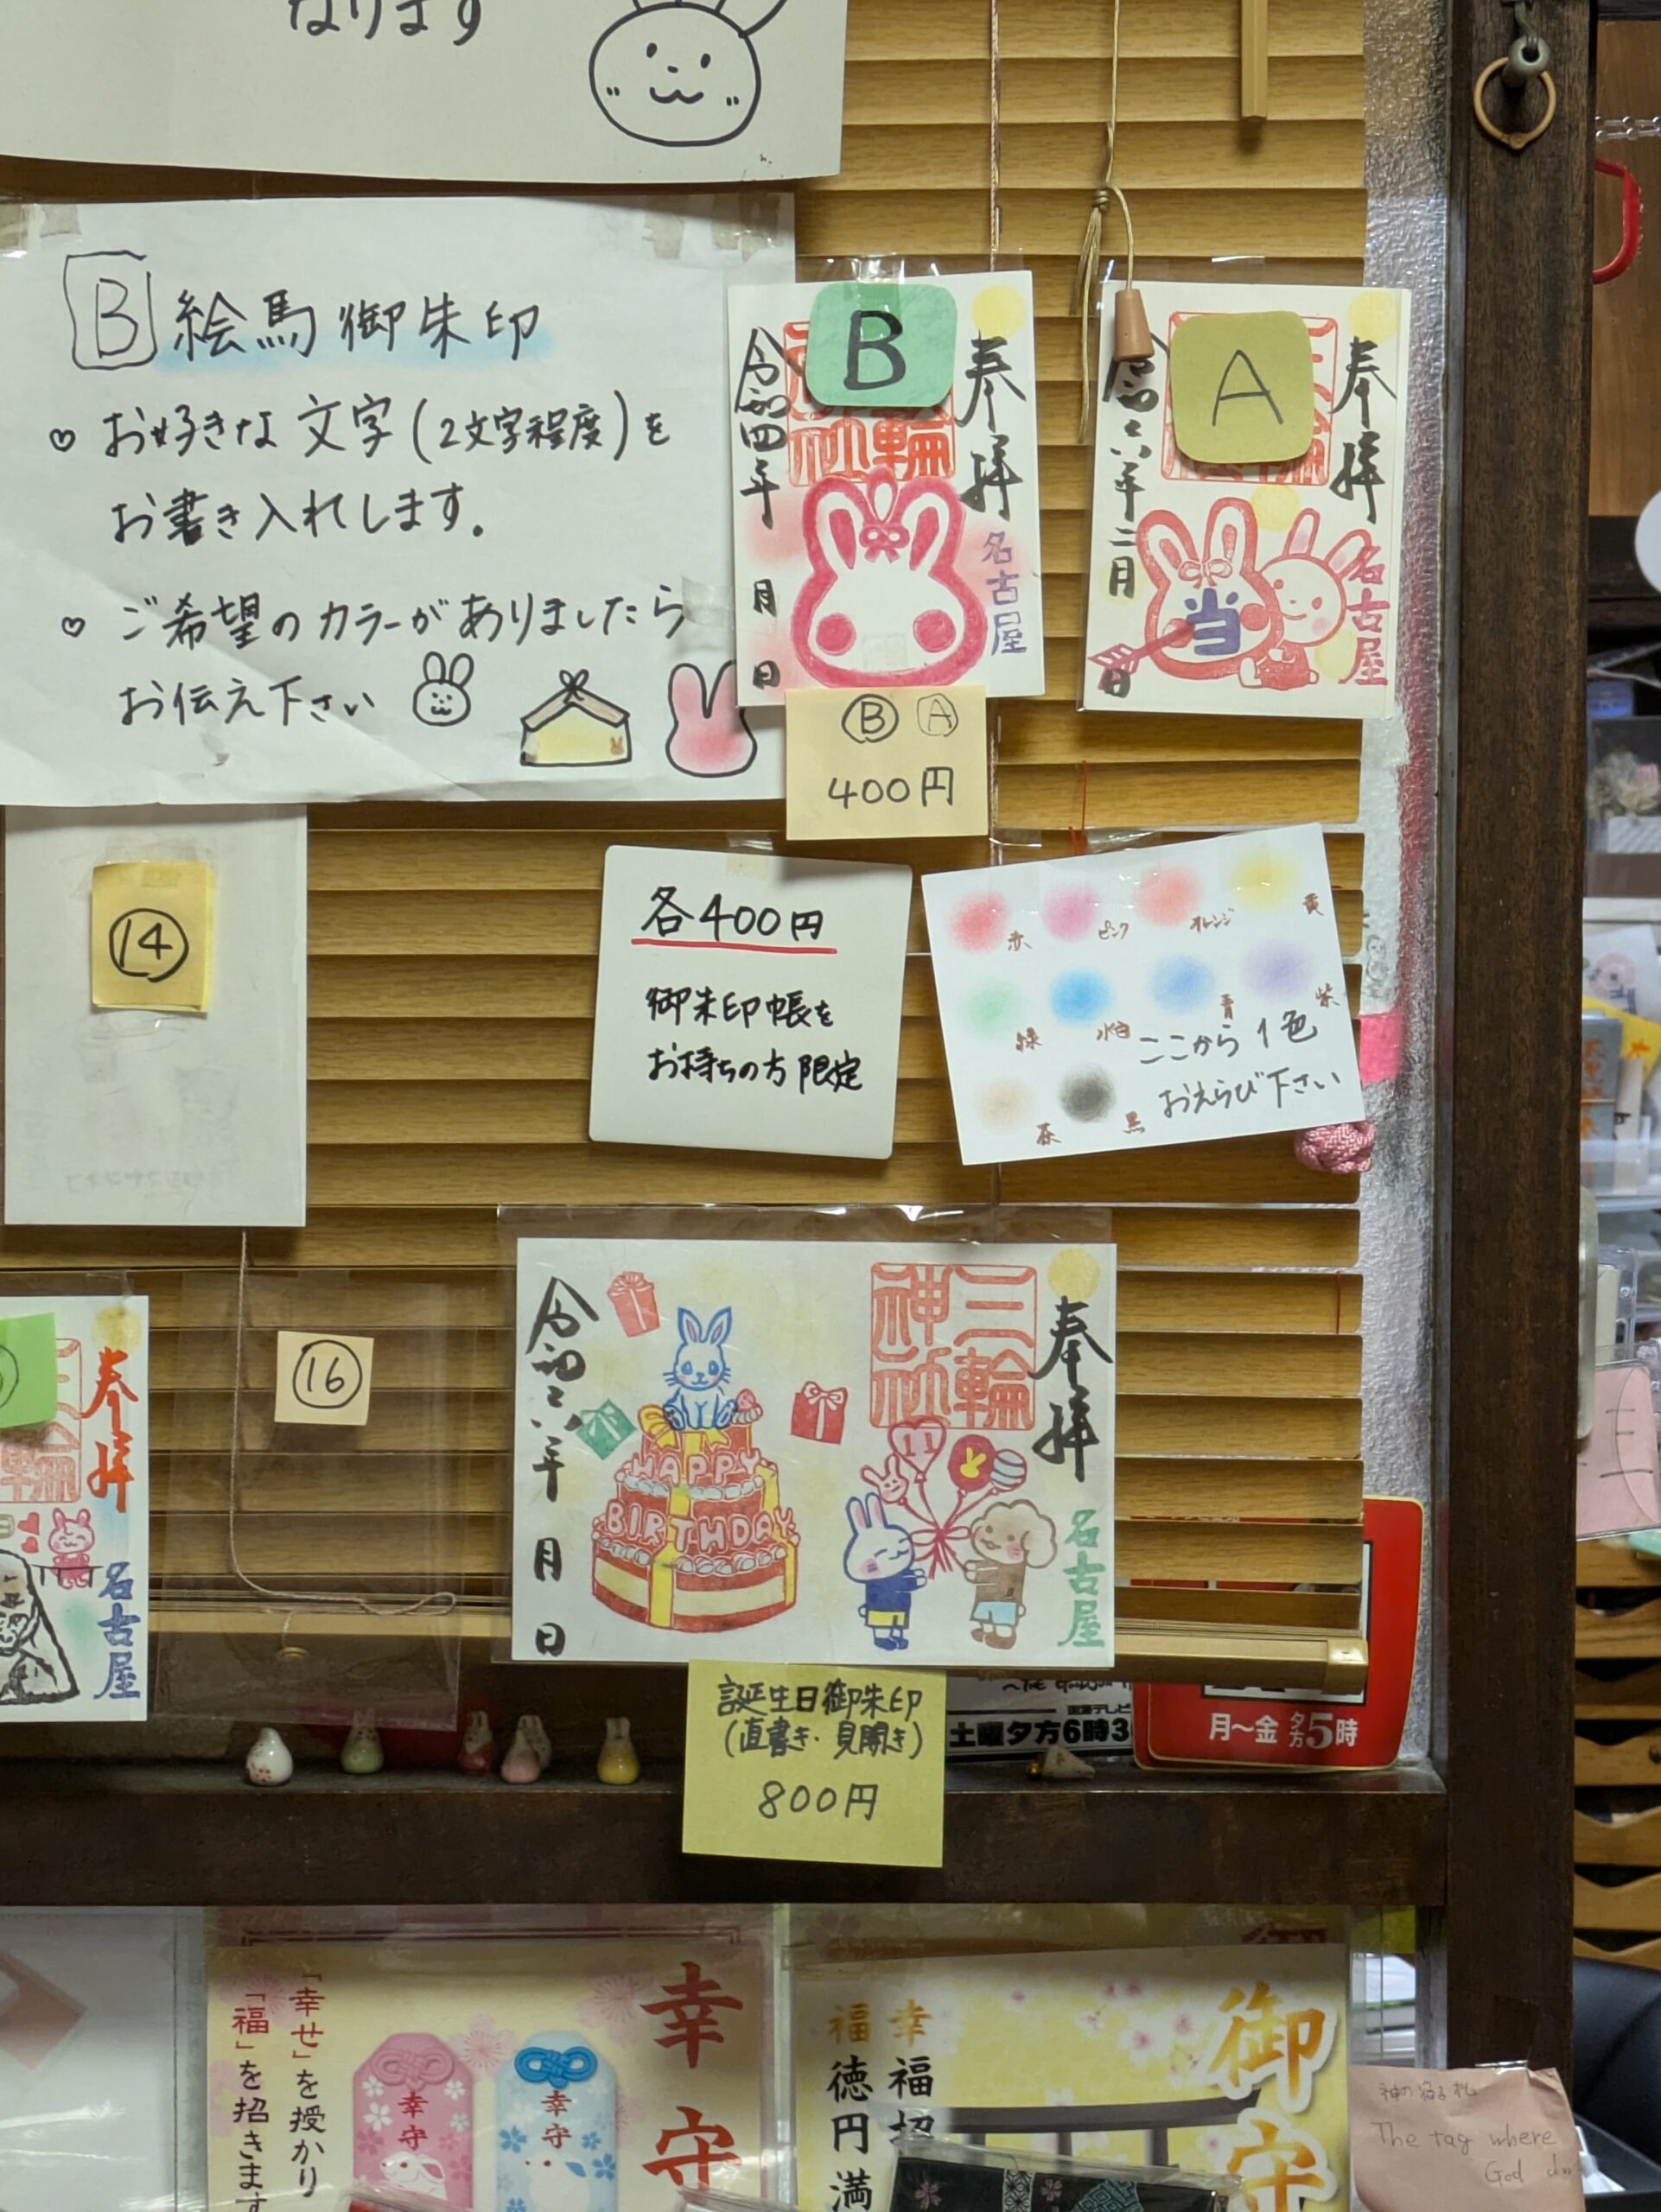 なります
B 絵馬御朱印
♡ お好きな文字(2文字程度)を
お書き入れします。
♡ ご希望のカラーがありましたら
お伝え下さい
B
奉拝
名古屋
令和四年 月 日
Ⓑ Ⓐ
400円
A
奉拝
名古屋
当
令和六年二月 日
⑭
各400円
御朱印帳を
お持ちの方限定
赤 ピンク オレンジ 黄
緑 水色 青 紫
茶 黒
ここから1色
おえらび下さい
奉拝
名古屋
⑯
奉拝
三輪神社
名古屋
HAPPY
BIRTHDAY
令和六年 月 日
誕生日御朱印
(直書き・見開き)
800円
東海テレビ
土曜夕方6時3
月~金 夕方5時
幸守
「幸せ」を授かり
「福」を招きます
幸守
幸守
御守
幸福招
福徳円満
神の宿る札
The tag where
God